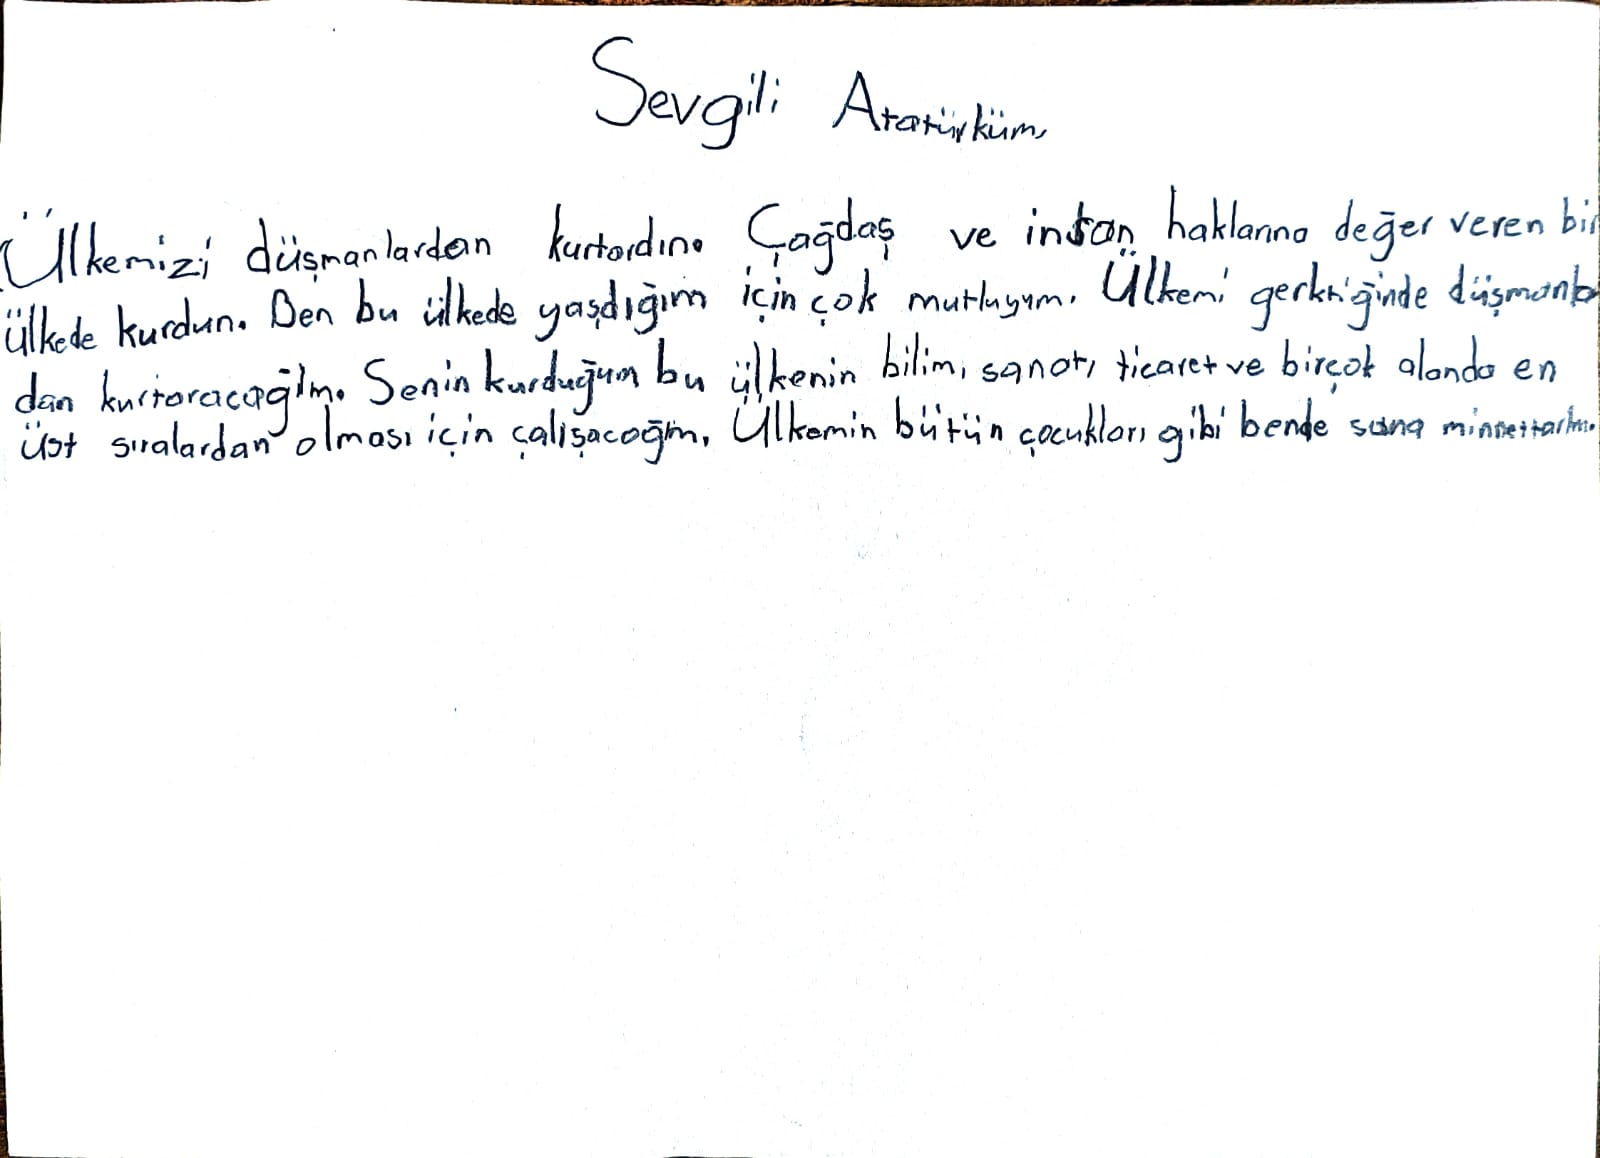 Sevgili Atatürküm,
Ülkemizi düşmanlardan kurtardın. Çağdaş ve insan haklarına değer veren bir
ülkede kurdun. Ben bu ülkede yaşdığım için çok mutluyum. Ülkemi gerktiğinde düşmanla
dan kurtaracağım. Senin kurduğun bu ülkenin bilim, sanat, ticaret ve birçok alanda en
üst sıralardan olması için çalışacağım. Ülkemin bütün çocukları gibi bende sana minnettarım.